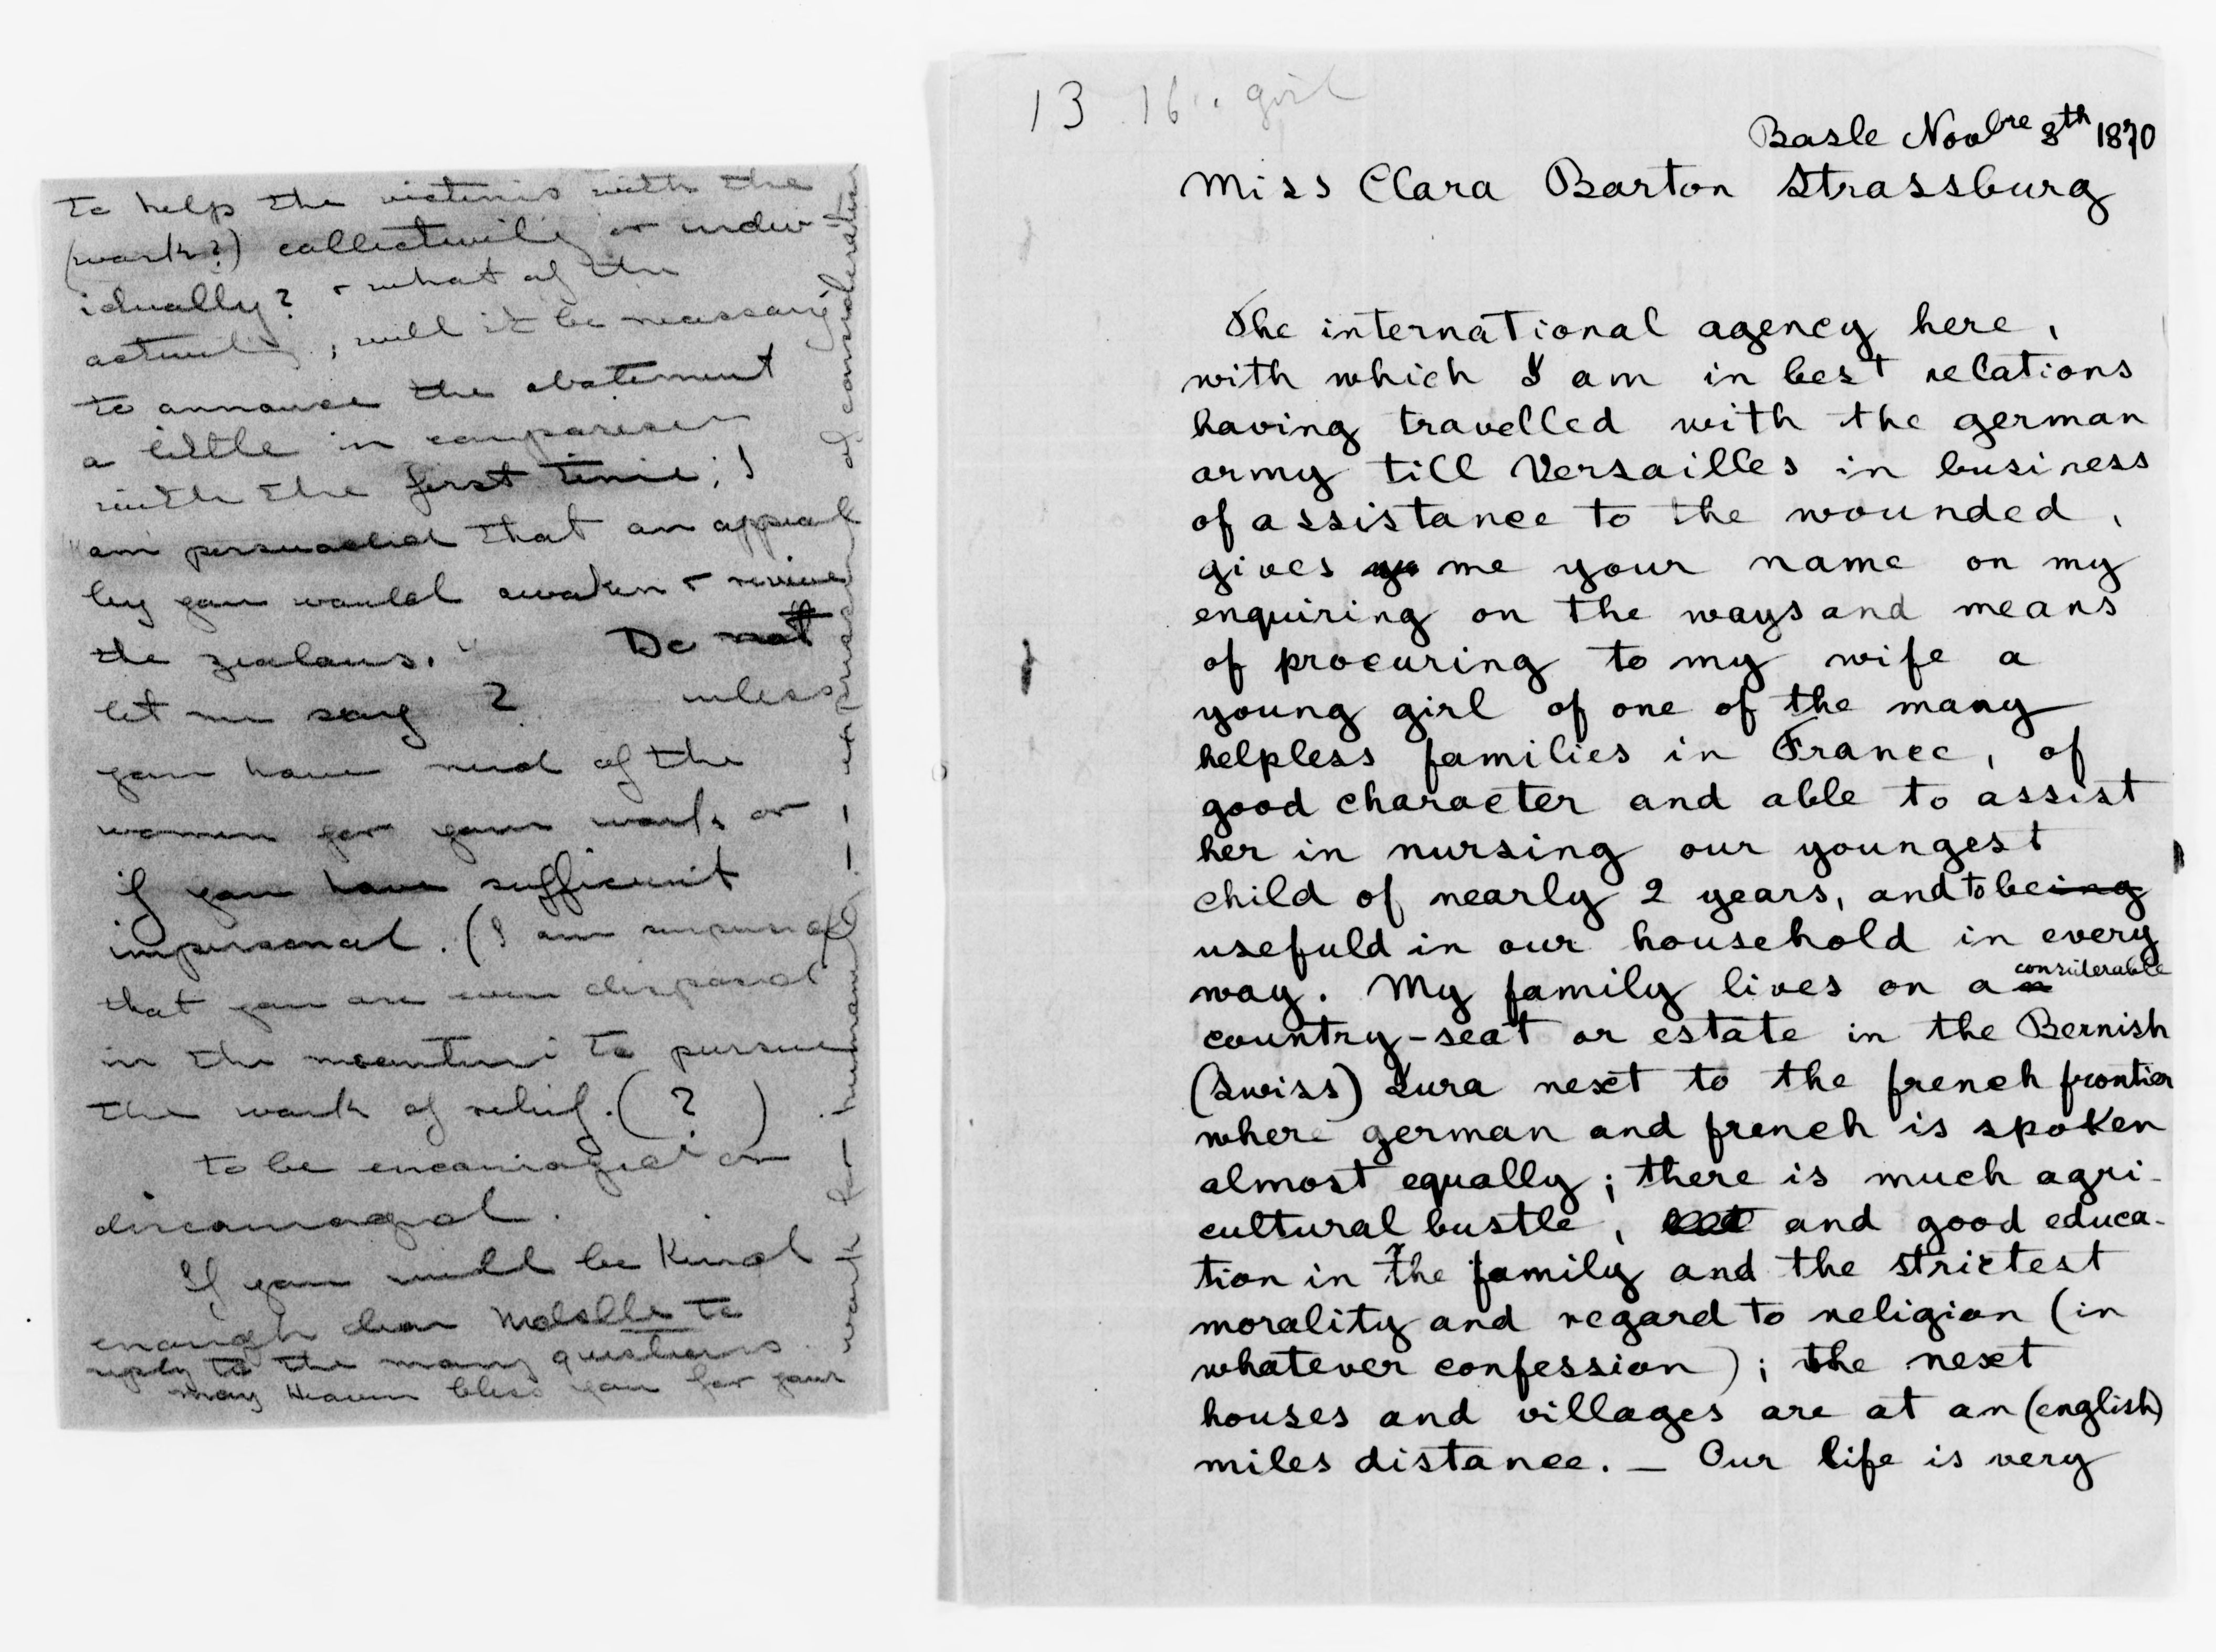 to help the victims with the
(work?) collectively or indiv-
idually? + what of the
activity, will it be necessary
to announce the abatement
a little in comparison
with the first time; I
"am persuaded that an appeal
by you would awaken + revive
the zealous." Do not
let me say ? unless
you have need of the
women for your work or
if you have sufficient
impersonal. (I am surprised
that you are even disposed
in the meantime to pursue
the work of relief. ( ? )
to be encouraged or
discouraged.
If you will be kind
enough dear Mdslle to
reply to the many questions
may Heaven bless you for your
work for humanity! — ! — expression of consideration
13 16 girl
Basle Novbre 8th 1870
Miss Clara Barton Strassburg
The international agency here,
with which I am in best relations
having travelled with the german
army till Versailles in business
of assistance to the wounded,
gives me your name on my
enquiring on the ways and means
of procuring to my wife a
young girl of one of the many
helpless families in France, of
good character and able to assist
her in nursing our youngest
child of nearly 2 years, and to being
usefuld in our household in every
way. My family lives on a considerable
country-seat or estate in the Bernish
(Swiss) Jura next to the french frontier
where german and french is spoken
almost equally; there is much agri-
cultural bustle, and good educa-
tion in the family and the strictest
morality and regard to religion (in
whatever confession); the next
houses and villages are at an (english)
miles distance. — Our life is very